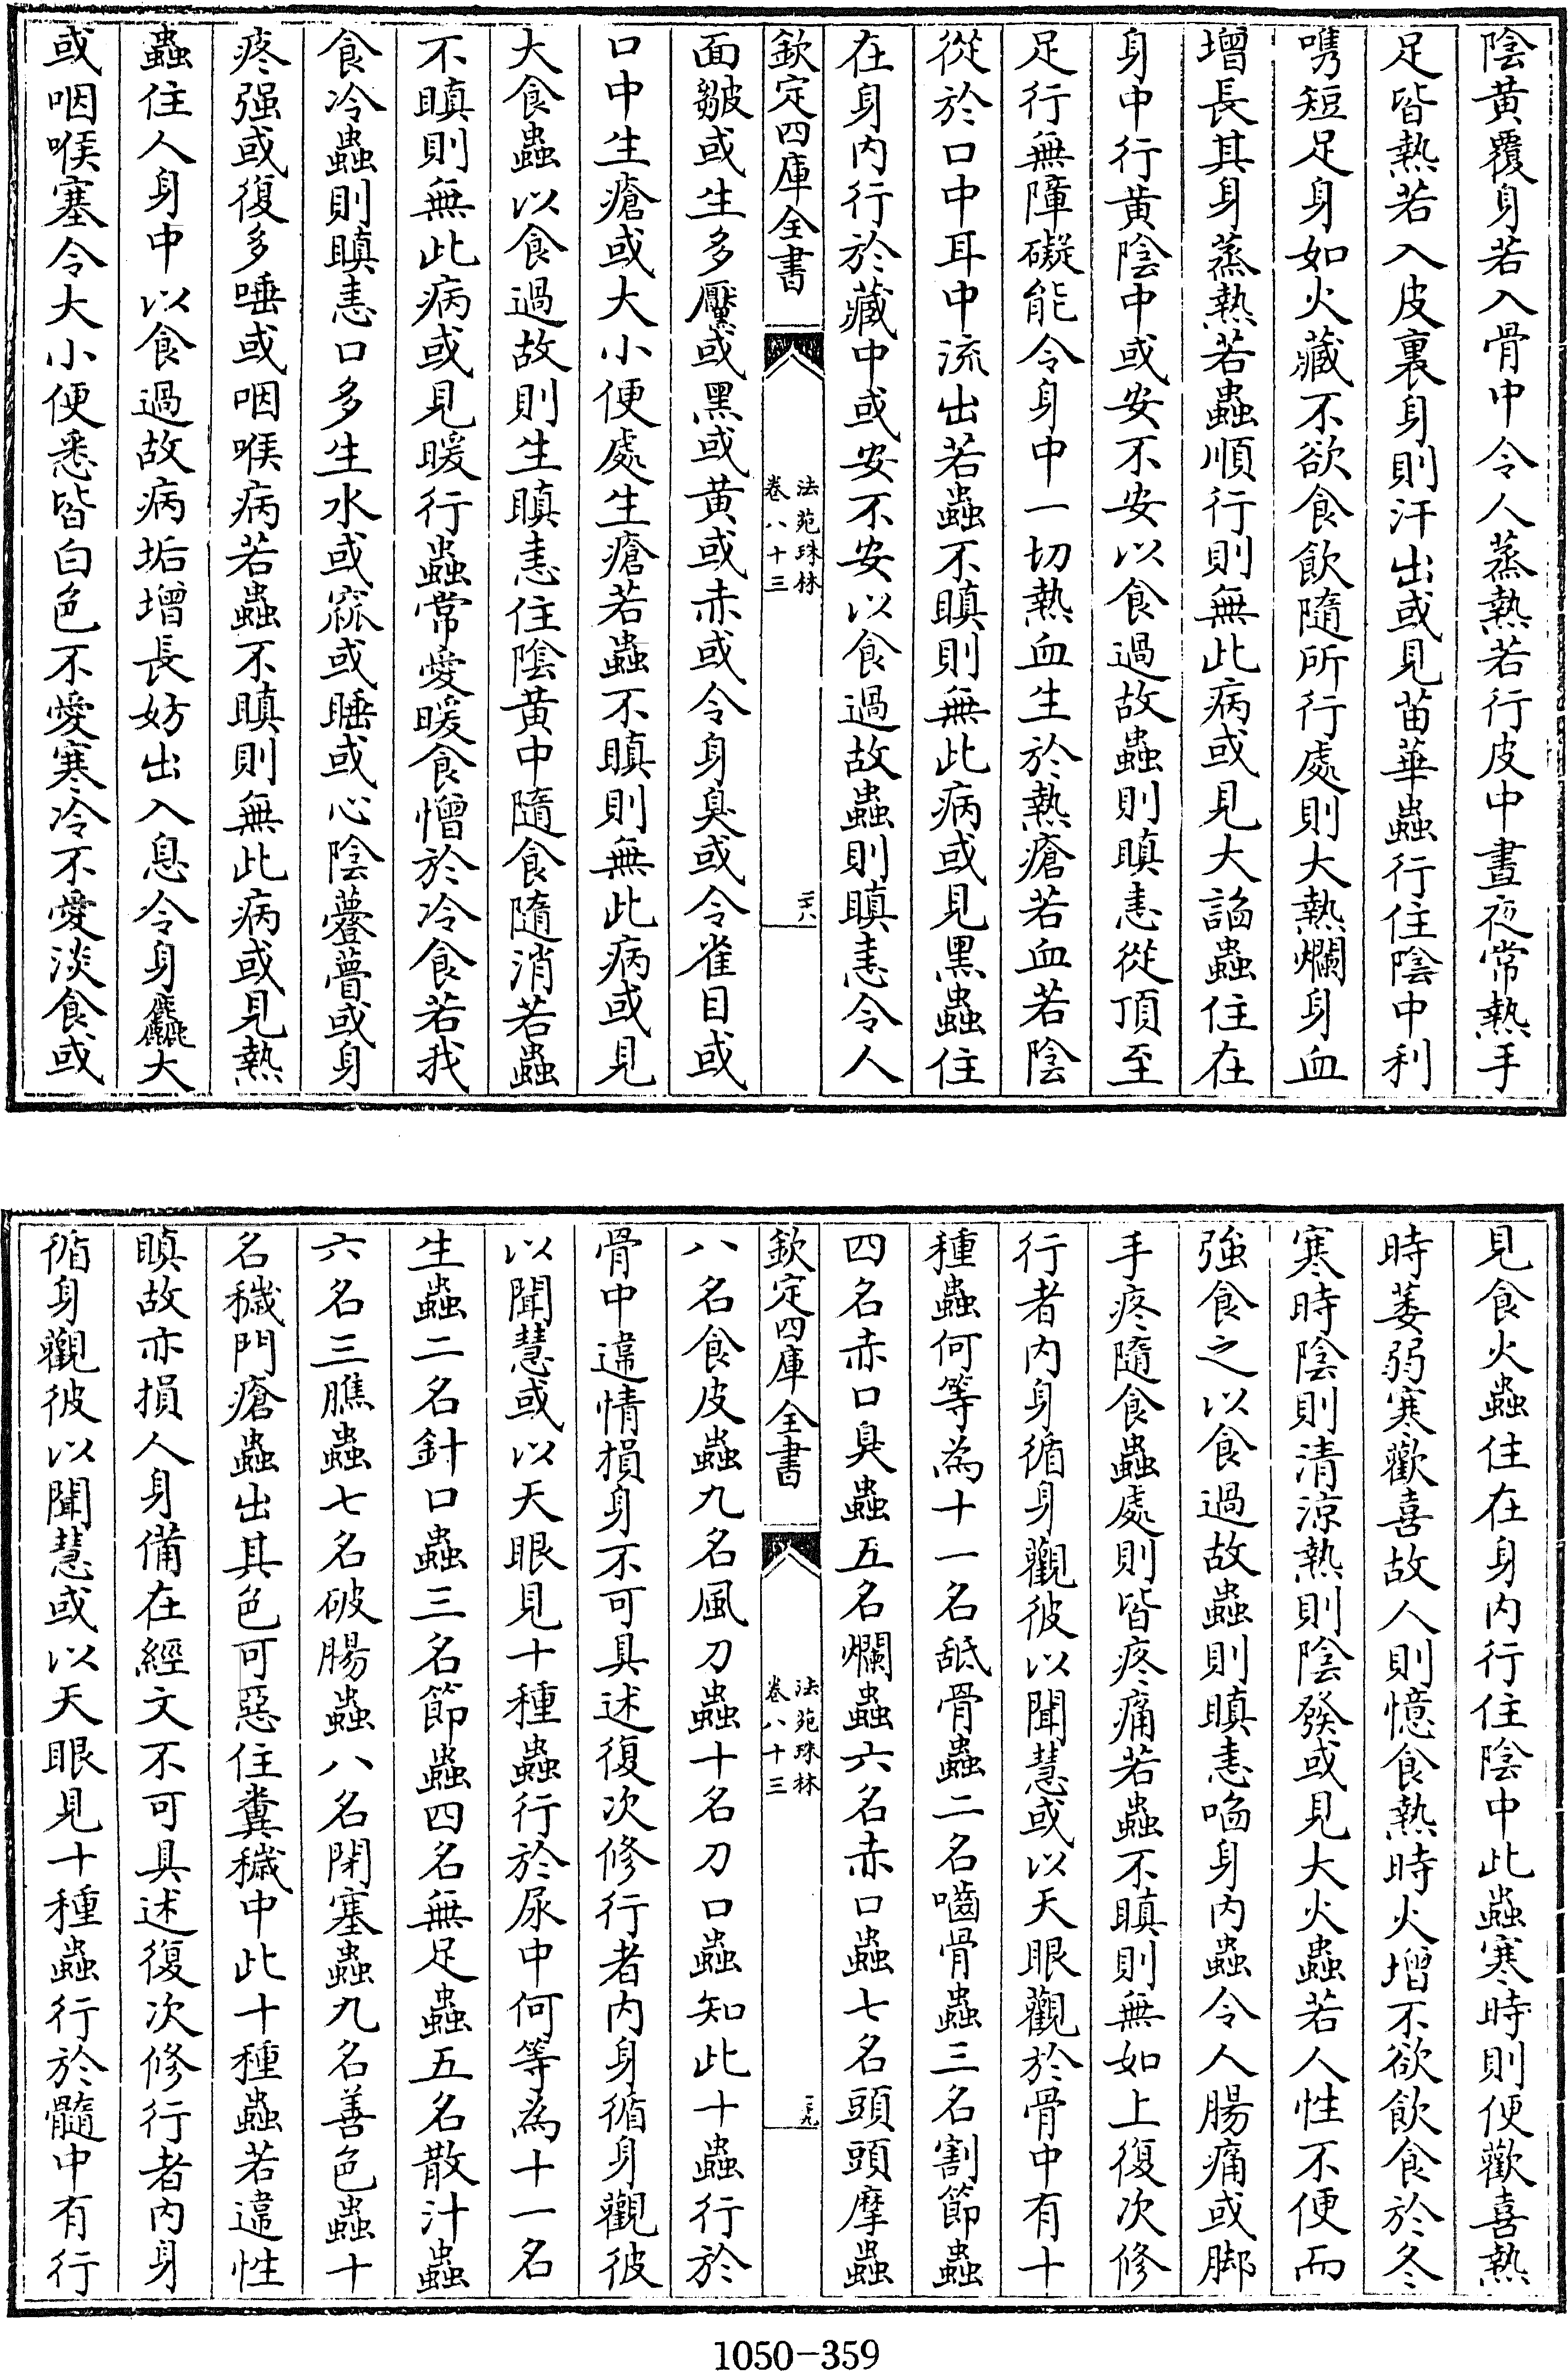 陰黃覆身若入骨中令人蒸熱若行皮中晝夜常熱手
足皆熱若入皮裏身則汗出或見苗華蟲行住陰中利
㗱短足身如火藏不欲食飲隨所行處則大熱爛身血
增長其身蒸熱若蟲順行則無此病或見大諂蟲住在
身中行黃陰中或安不安以食過故蟲則瞋恚從頂至
足行無障礙能令身中一切熱血生於熱瘡若血若陰
從於口中耳中流出若蟲不瞋則無此病或見黑蟲住
在身內行於藏中或安不安以食過故蟲則瞋恚令人
欽定四庫全書
法苑珠林
卷八十三
二十八
面皺或生多黶或黑或黃或赤或令身臭或令雀目或
口中生瘡或大小便處生瘡若蟲不瞋則無此病或見
大食蟲以食過故則生瞋恚住陰黃中隨食隨消若蟲
不瞋則無此病或見暖行蟲常愛暖食憎於冷食若我
食冷蟲則瞋恚口多生水或窊或睡或心陰瞢瞢或身
疼强或復多唾或咽喉病若蟲不瞋則無此病或見熱
蟲住人身中以食過故病垢增長妨出入息令身麤大
或咽喉塞令大小便悉皆白色不愛寒冷不愛淡食或
見食火蟲住在身內行住陰中此蟲寒時則便歡喜熱
時萎弱寒歡喜故人則憶食熱時火增不欲飲食於冬
寒時陰則清涼熱則陰發或見大火蟲若人性不便而
強食之以食過故蟲則瞋恚㗖身內蟲令人腸痛或脚
手疼隨食蟲處則皆疼痛若蟲不瞋則無如上復次修
行者內身循身觀彼以聞慧或以天眼觀於骨中有十
種蟲何等為十一名舐骨蟲二名嚙骨蟲三名割節蟲
四名赤口臭蟲五名爛蟲六名赤口蟲七名頭頭摩蟲
欽定四庫全書
法苑珠林
卷八十三
二十九
八名食皮蟲九名風刀蟲十名刀口蟲知此十蟲行於
骨中違情損身不可具述復次修行者內身循身觀彼
以聞慧或以天眼見十種蟲行於尿中何等為十一名
生蟲二名針口蟲三名節蟲四名無足蟲五名散汁蟲
六名三膲蟲七名破腸蟲八名閉塞蟲九名善色蟲十
名穢門瘡蟲出其色可惡住糞穢中此十種蟲若違性
瞋故亦損人身備在經文不可具述復次修行者內身
循身觀彼以聞慧或以天眼見十種蟲行於髓中有行
1050-359